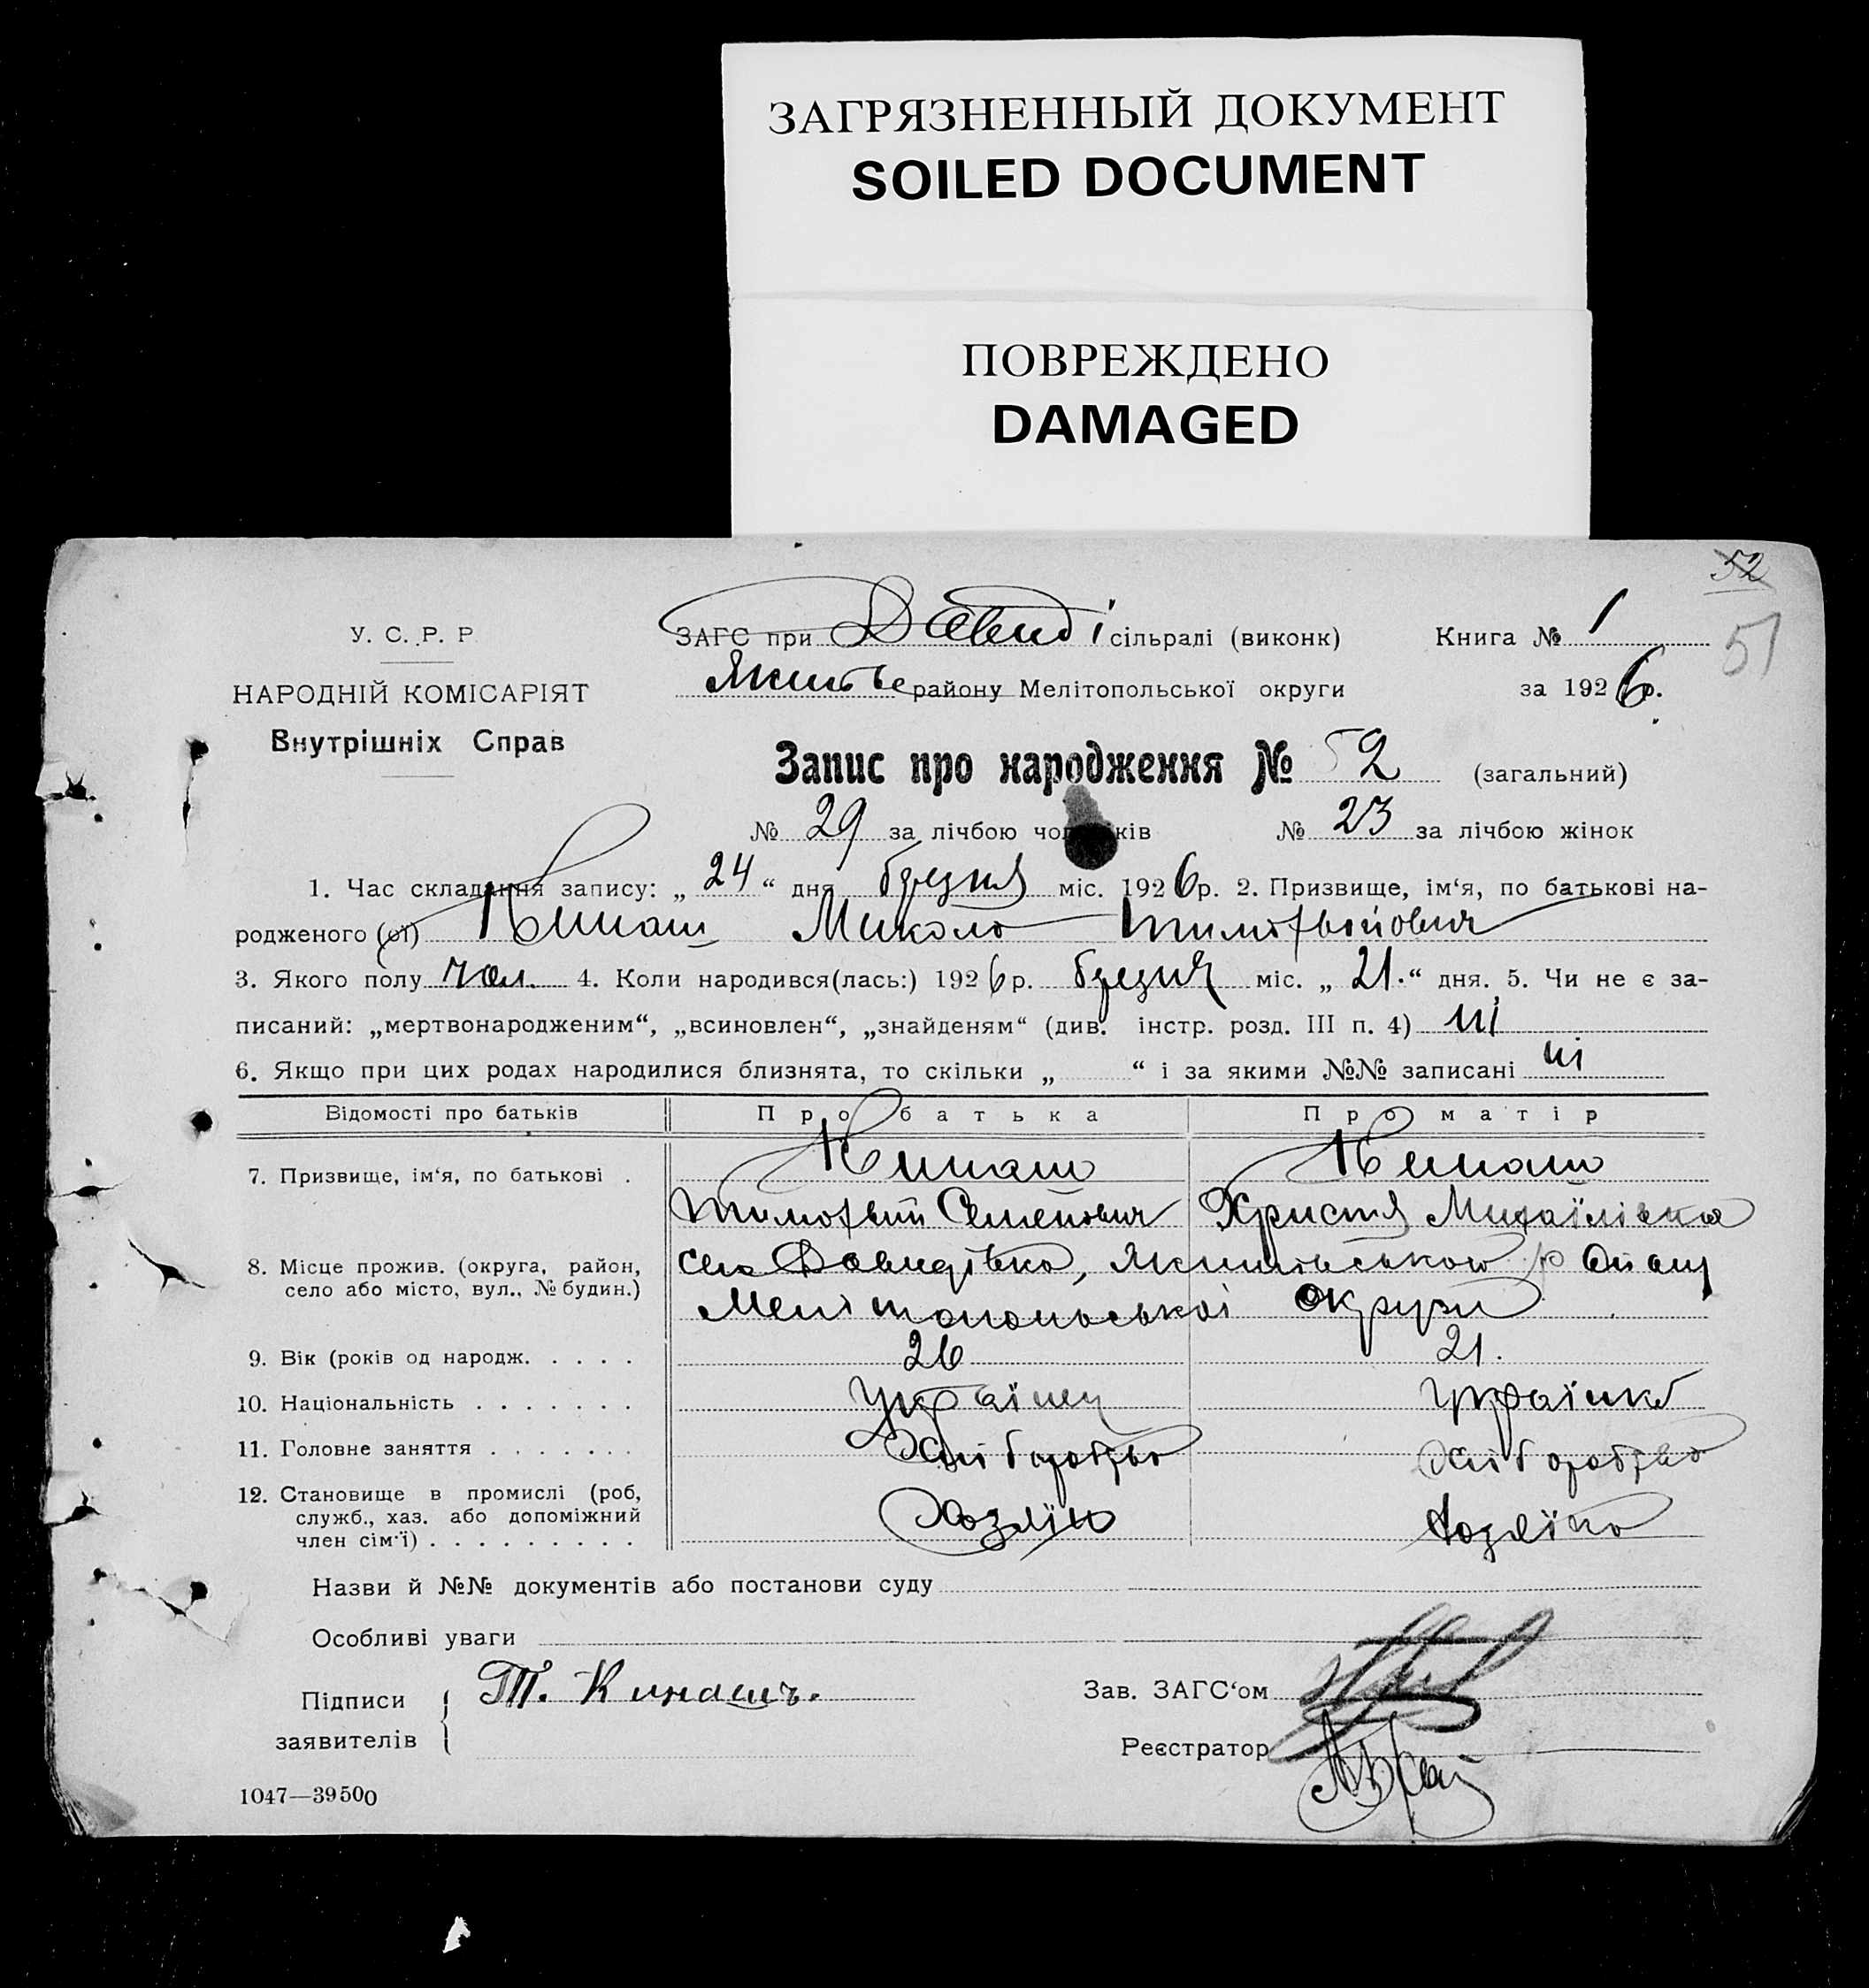 ЗАГРЯЗНЕННЫЙ ДОКУМЕНТ
SOILED DOCUMENT
ПОВРЕЖДЕНО
DAMAGED
52
51
У. С. Р. Р
НАРОДНІЙ КОМІСАРІЯТ
Внутрішніх Справ
ЗАГС при Давиді сільраді (виконк) Книга № 1
району Мелітопольської округи за 1926 р.
Запис про народження № 52 (загальний)
№ 29 за лічбою чоловіків № 23 за лічбою жінок
1. Час складання запису: „ 24 “ дня березня міс. 1926 р. 2. Призвище, ім‘я, по батькові на-
родженого (ої) Кинаш Микола Тимофвійович
3. Якого полу чол. 4. Коли народився(лась:) 1926 р. березня міс. „ 21. “ дня. 5. Чи не є за-
писаний: „мертвонародженим“, „всиновлен“, „знайденям“ (див. інстр. розд. III п. 4) ні
6. Якщо при цих родах народилися близнята, то скільки „ “ і за якими №№ записані ні
Відомості про батьків Про батька Про матір
7. Призвище, ім‘я, по батькові . Кинаш Кинаш
Тимофвий Семенович Христя Михайлівна
8. Місце прожив. (округа, район, село або місто, вул., № будин.) село Давидівка, Якимівського району
Мелітопольської округи
9. Вік (років од народж. . . . . 26 21.
10. Національність . . . . . . . Українец Українка
11. Головне заняття . . . . . . . Хліборобство Хліборобство
12. Становище в промислі (роб, служб., хаз. або допоміжний член сім‘ї) . . . . . . . . . Хозяїн Хозяїка
Назви й №№ документів або постанови суду
Особливі уваги
Підписи заявителів Т. Кинашъ.
Зав. ЗАГС‘ом
Реєстратор
1047—39500